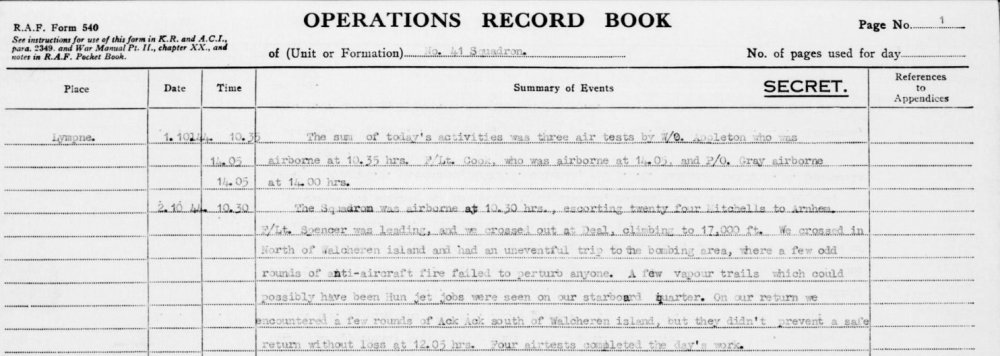 R.A.F. Form 540
See instructions for use of this form in K.R. and A.C.I.,
para. 2349, and War Manual Pt. II., chapter XX., and
notes in R.A.F. Pocket Book.
OPERATIONS RECORD BOOK
of (Unit or Formation) No. 41 Squadron.
Page No. 1
No. of pages used for day
Place Date Time Summary of Events SECRET. References to Appendices
Lympne. 1.10.44. 10.35 The sum of today's activities was three air tests by W/O. Appleton who was
14.05 airborne at 10.35 hrs. F/Lt. Cook, who was airborne at 14.05, and P/O. Gray airborne
14.05 at 14.00 hrs.
2.10.44. 10.30 The Squadron was airborne at 10.30 hrs., escorting twenty four Mitchells to Arnhem.
F/Lt. Spencer was leading, and we crossed out at Deal, climbing to 17,000 ft. We crossed in
North of Walcheren island and had an uneventful trip to the bombing area, where a few odd
rounds of anti-aircraft fire failed to perturb anyone. A few vapour trails which could
possibly have been Hun jet jobs were seen on our starboard quarter. On our return we
encountered a few rounds of Ack Ack south of Walcheren island, but they didn't prevent a safe
return without loss at 12.05 hrs. Four airtests completed the day's work.